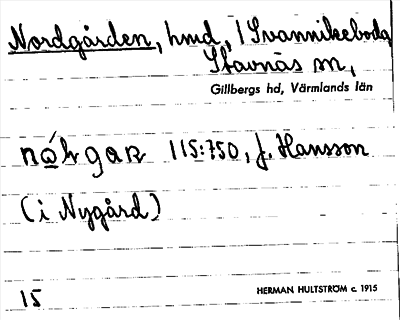 Nordgården, hmd, / Svannikeboda
Stavnäs sn,
Gillbergs hd, Värmlands län
115:750, J. Hansson
(i Nygård)
15
HERMAN HULTSTRÖM c. 1915